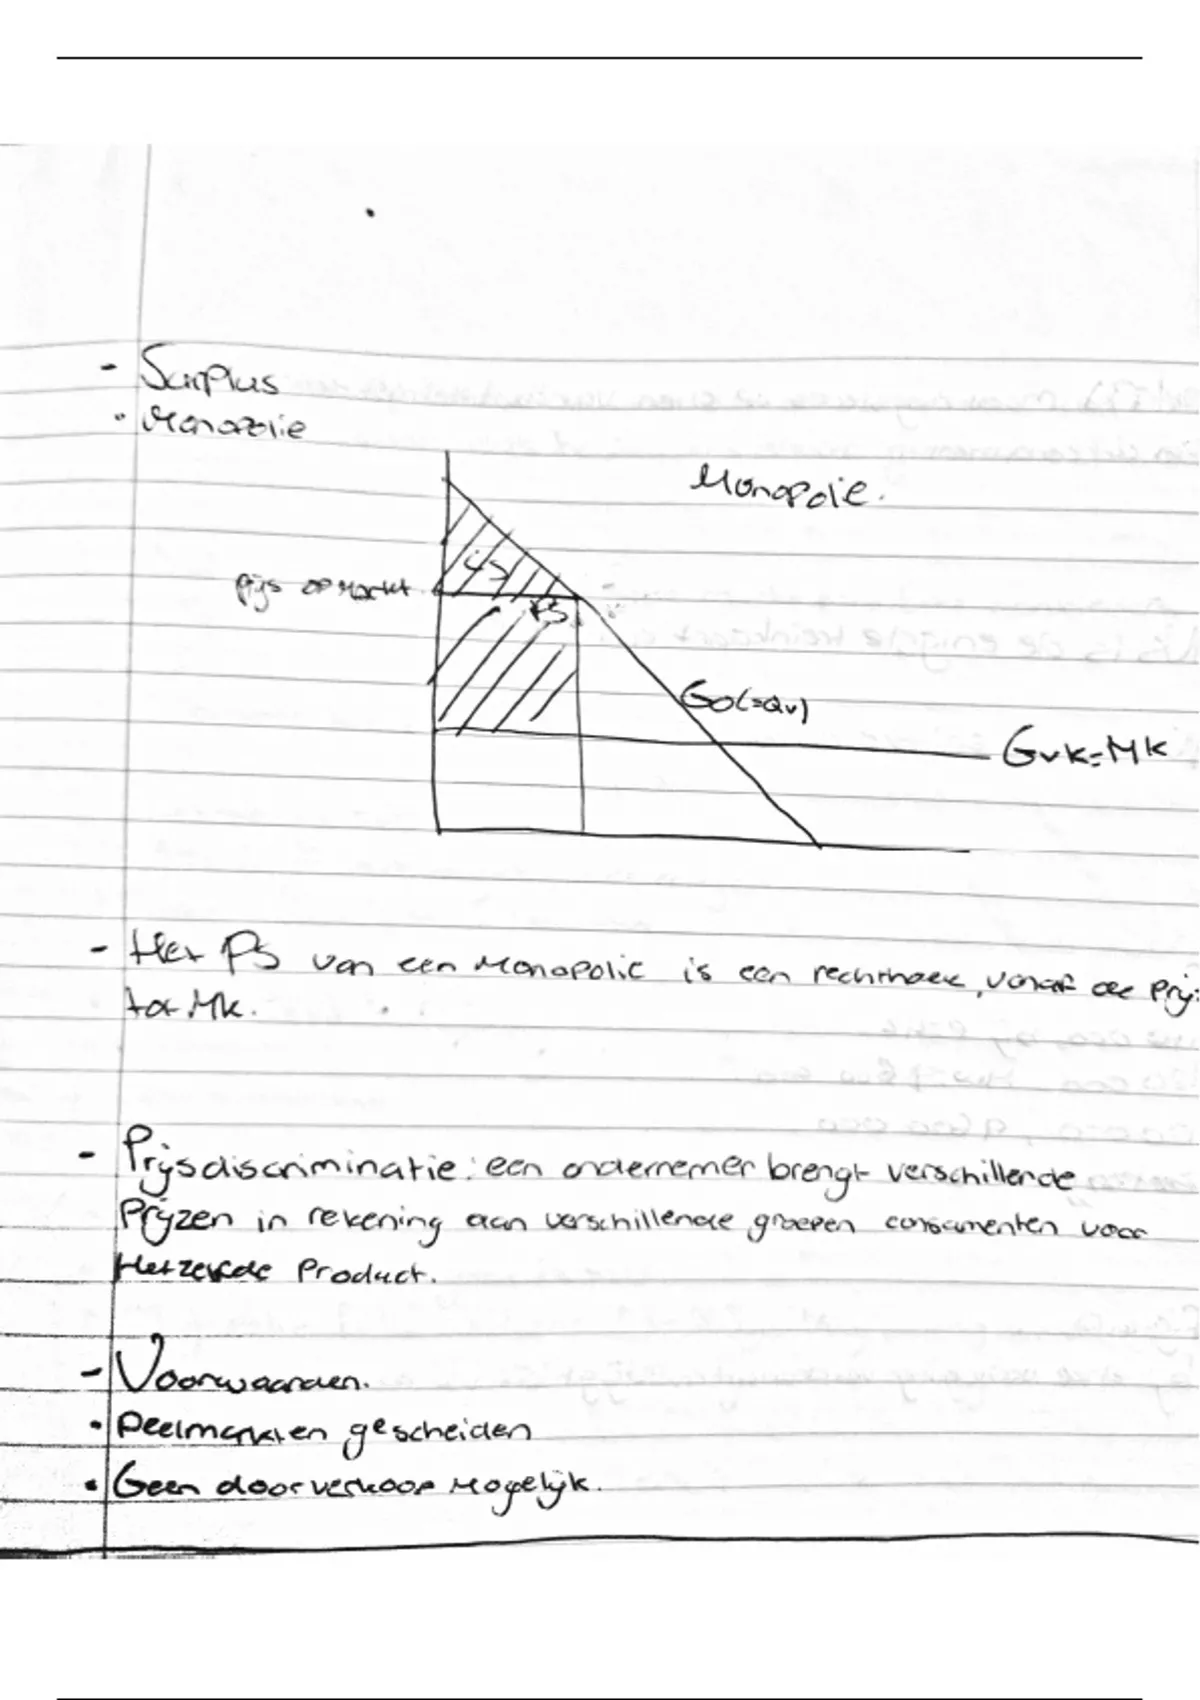 - Surplus
• Monopolie
Monopolie.
CS
prijs op Markt
PS
GO(=Qv)
GVK=MK
- Het PS van een Monopolie is een rechthoek, vanaf de prij
tot MK.
- Prijsdiscriminatie: een ondernemer brengt verschillende
Prijzen in rekening aan verschillende groepen consumenten voor
Hetzelfde Product.
- Voorwaarden.
• Deelmarkten gescheiden
• Geen doorverkoop Mogelijk.